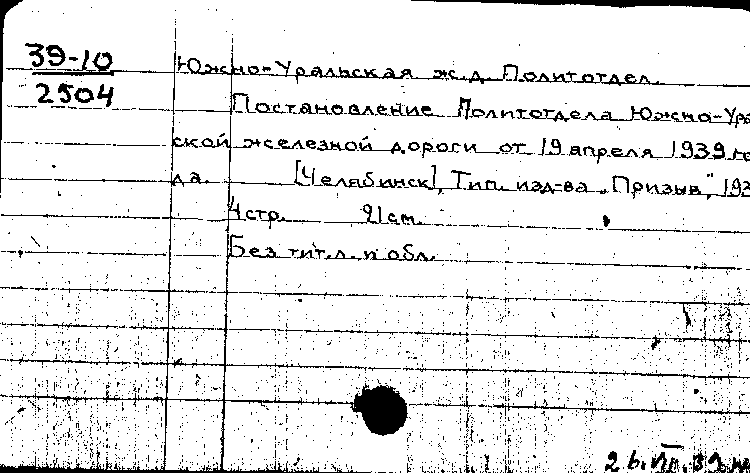 39-10
2504
Южно-Уральская ж.д. Политотдел.
Постановление Политотдела Южно-Ура
ской железной дороги от 19 апреля 1939 го
да. [Челябинск], Тип. изд-ва „Призыв", 193
4 стр. 21 см.
Без тит. л. и обл.
26.VII.39